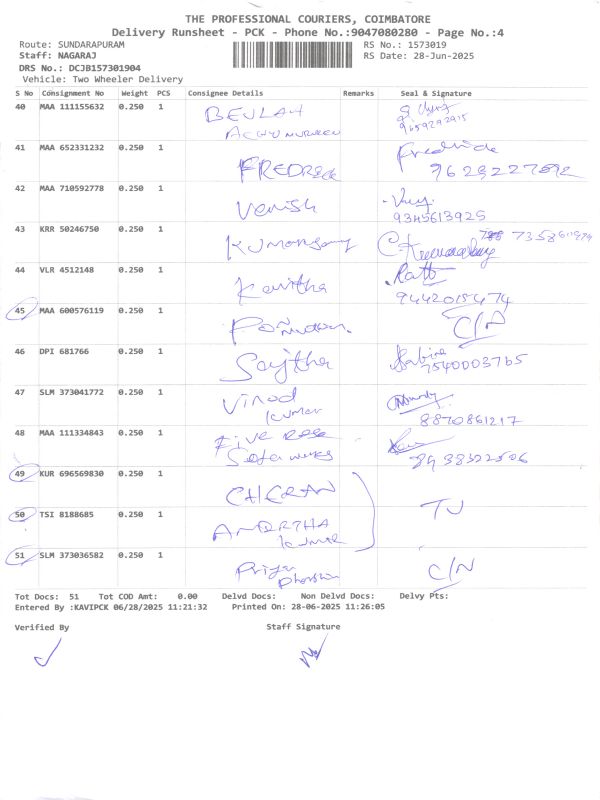 THE PROFESSIONAL COURIERS, COIMBATORE
Delivery Runsheet - PCK - Phone No.:9047080280 - Page No.:4
Route: SUNDARAPURAM RS No.: 1573019
Staff: NAGARAJ RS Date: 28-Jun-2025
DRS No.: DCJB157301904
Vehicle: Two Wheeler Delivery
S No Consignment No Weight PCS Consignee Details Remarks Seal & Signature
40 MAA 111155632 0.250 1 BEULAH
9659292915
41 MAA 652331232 0.250 1 FREDRECK Fredrick
42 MAA 710592778 0.250 1 Venish
9345613925
43 KRR 50246750 0.250 1
44 VLR 4512148 0.250 1 Kavitha
9442015474
45 MAA 600576119 0.250 1 C/N
46 DPI 681766 0.250 1 Sajitha Sabira
7540003765
47 SLM 373041772 0.250 1 Vinod
Kumar 8870861217
48 MAA 111334843 0.250 1 FIVE ROSE
Sofa works 8438322506
49 KUR 696569830 0.250 1 CHERAN
50 TSI 8188685 0.250 1
Kumar
51 SLM 373036582 0.250 1 Priya C/N
Tot Docs: 51 Tot COD Amt: 0.00 Delvd Docs: Non Delvd Docs: Delvy Pts:
Entered By :KAVIPCK 06/28/2025 11:21:32 Printed On: 28-06-2025 11:26:05
Verified By Staff Signature